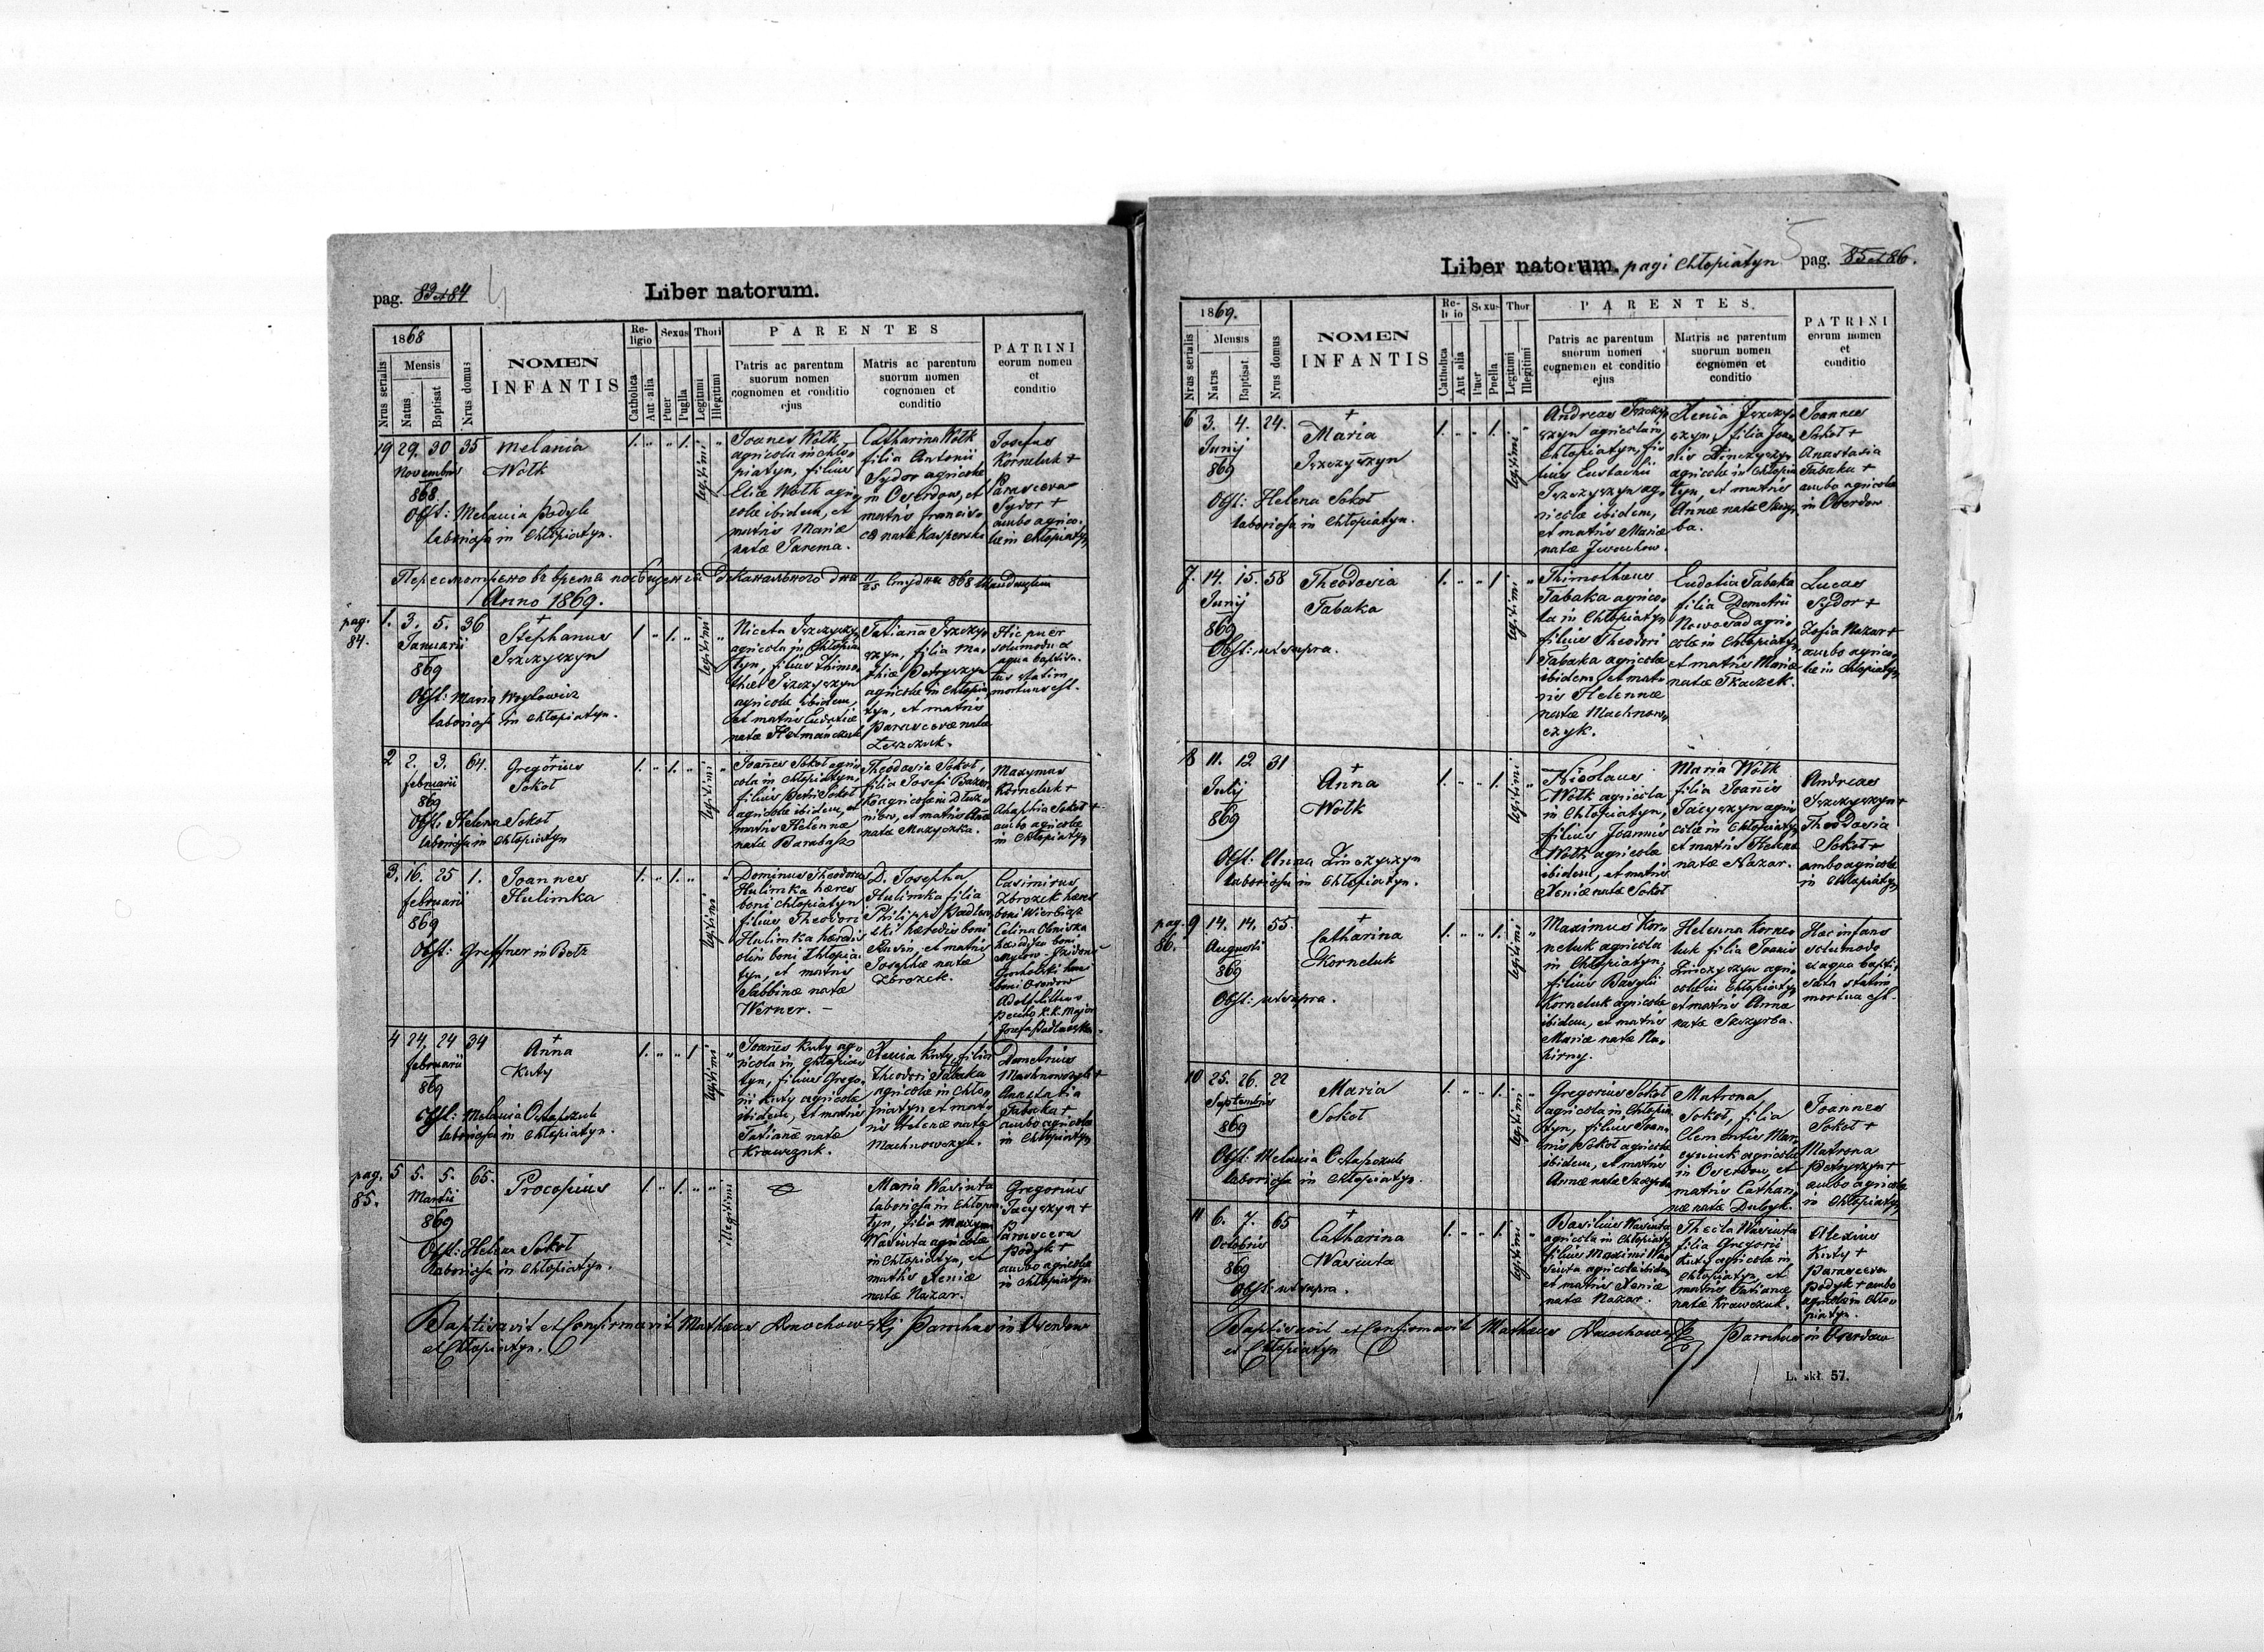 pag. 83 et 84
4
Liber natorum.
1868
Nrus serialis
Mensis
Natus
Baptisat
Nrus domus
NOMEN
INFANTIS
Re-
ligio
Catholica
Aut alia
Sexus
Puer
Puella
Thori
Legitimi
Illegitimi
PARENTES
Patris ac parentum
suorum nomen
cognomen et conditio
ejus
Matris ac parentum
suorum nomen
cognomen et
conditio
PATRINI
eorum nomen
et
conditio
19 29. 30 35 Melania
Novembris
868
Wołk
Obst: Melania Podyk
laboriosa in Chłopiatyn.
1. " " 1. legitimi "
Joanes Wołk
agricola in Chło-
piatyn, filius
Eliæ Wołk agri-
colæ ibidem, et
matris Mariæ
natæ Jarema.
Catharina Wołk
filia Antonii
Sydor agricolæ
in Oserdow, et
matris Francisc
natæ Kasperska
Josefus
Korneluk +
Parasceva
Sydor +
ambo agrico-
læ in Chłopiatyn
Anno 1869.
pag.
84.
1. 3. 5. 36
Januarii
869
+
Stephanus
Iszczyszyn
Obst: Maria Woytowicz
laboriosa in Chłopiatyn.
1 " 1. " legitimi "
Niceta Iszczyszyn
agricola in Chłopia-
tyn, filius Thimo-
thei Iszczyszyn
agricolæ ibidem,
et matris Eudociæ
natæ Hetmańczuk
Tatianna Iszczy-
szyn, filia Ma-
thiæ Petryszyn
agricolæ in Chłopia-
tyn, et matris
Parascevæ natæ
Leszczuk.
Hic puer
solummodo ex
aqua baptisa-
tus statim
mortuus est.
2 2. 3. 64.
februarii
869
+
Gregorius
Sokoł
Obst: Helena Sokoł
laboriosa in Chłopiatyn
1. " 1. " legitimi "
Joañes Sokoł agri-
cola in Chłopiatyn,
filius Petri Sokoł
agricolæ ibidem, et
matris Helennæ
natæ Barabasz
Theodosia Sokoł,
filia Josefi
agricolæ in Dłuż-
niow, et matris
natæ Muzyczka.
Maxymus
Korneluk +
Ahaphia Sokoł +
ambo agricolæ
in Chłopiatyn
3. 16. 25 1.
februarii
869
Joannes
Hulimka
Obst: Greffner in Bełz
1. " 1. " legitimi "
Dominus Theodorus
Hulimka hæres
boni Chłopiatyn
filius Theodori
Hulimka hæredis
olim boni Chłopia-
tyn, et matris
Sabbinæ natæ
Werner. -
D. Josepha
Hulimka filia
Philippi Padlew-
ski hæredis boni
Rusin, et matris
Josephæ natæ
Zbrozek.
Casimirus
Zbrozek hæres
boni Wierbiąż
Celina Obniska
hæredissa boni
Myców - Isidor
hæres
boni Oserdow
Adolf
k.k. Major
Josefa Padlewska
4 24. 24 34
februarii
869
+
Anna
Kuty
Obst: Melania Ostapczuk
laboriosa in Chłopiatyn.
1. " " 1 legitimi "
Joañes Kuty ag-
ricola in Chłopia-
tyn, filius Grego-
rii Kuty agricolæ
ibidem, et matris
Tatiannæ natæ
Krawczuk.
Xenia Kuty, filia
Theodori Tabaka
agricolæ in Chło-
piatyn et mat-
ris Helenæ natæ
Machnowczyk.
Demetrius
Machnowczyk +
Anastasia
Tabaka +
ambo agricolæ
in Chłopiatyn
pag.
85.
5 5. 5. 65.
Martii
869
Procopius
Obst: Helena Sokoł
laboriosa in Chłopiatyn.
1. " 1. " " illegitimi
Maria Wasiuta
laboriosa in Chłopia-
tyn, filia Maxymi
Wasiuta agricolæ
in Chłopiatyn, et
matris Xeniæ
natæ Nazar.
Gregorius
Jacyszyn +
Parasceva
Podyk +
ambo agricolæ
in Chłopiatyn
Baptisavit et Confirmavit Mathæus Dmochowskj Parochus in Oserdow
et Chłopiatyn.
5
Liber natorum. pagi Chłopiatyn pag. 85 et 86.
1869.
Nrus serialis
Mensis
Natus
Baptisat
Nrus domus
NOMEN
INFANTIS
Re-
li io
Catholica
Aut alia
Sexu-
Puer
Puella
Thor
Legitimi
Illegitimi
PARENTES.
Patris ac parentum
suorum nomen
cognomen et conditio
ejus
Matris ac parentum
suorum nomen
cognomen et
conditio
PATRINI
eorum nomen
et
conditio
6 3. 4. 24.
Junij
869
+
Maria
Iszczyszyn
Obst: Helena Sokoł
laboriosa in Chłopiatyn.
1. " " 1. legitimi "
Andreas Iszczy-
szyn agricola in
Chłopiatyn, fi-
lius Eustachii
Iszczyszyn ag-
ricolæ ibidem,
et matris Mariæ
natæ Iwachow.
Xenia Iszczy-
szyn, filia Joan-
nis Zinczyszyn
agricolæ in Chłopia-
tyn, et matris
Annæ natæ Skczyr-
ba.
Joannes
Sokoł +
Anastasia
Tabaka +
ambo agricolæ
in Oserdow
7. 14. 15. 58
Junij
869
Theodosia
Tabaka
Obst: ut supra.
1. " " 1. legitimi "
Thimotheus
Tabaka agrico-
la in Chłopiatyn
filius Theodori
Tabaka agricolæ
ibidem, et mat-
ris Helennæ
natæ Machnow-
czyk.
Eudokia Tabaka
filia Demetrii
Nowosad agri-
colæ in Chłopiatyn,
et matris Mariæ
natæ Tkaczek.
Lucas
Sydor +
Zofia Nazar +
ambo agrico-
læ in Chłopiatyn
8 11. 12 31
Julij
869
+
Anna
Wołk
Obst: Anna Zinczyszyn
laboriosa in Chłopiatyn.
1. " " 1. legitimi "
Nicolaus
Wołk agricola
in Chłopiatyn,
filius Joannis
Wołk agricolæ
ibidem, et matris
Xeniæ natæ Sokoł
Maria Wołk
filia Joanis
Jacyszyn agri-
colæ in Chłopiatyn,
et matris Helenæ
natæ Nazar.
Andreas
Iszczyszyn +
Theodosia
Sokoł +
ambo agricolæ
in Chłopiatyn
pag.
86.
9 14. 14. 55.
Augusti
869
+
Catharina
Korneluk
Obst: ut supra.
1. " " 1. legitimi "
Maximus Kor-
neluk agricola
in Chłopiatyn,
filius Basylii
Korneluk agricolæ
ibidem, et matris
Mariæ natæ Na-
hirny.
Helenna Korne-
luk filia Joanis
Zinczyszyn agri-
colæ in Chłopiatyn,
et matris Annæ
natæ Skczyrba.
Hæc infans
solumodo
ex aqua bapti-
sata statim
mortua est.
10 25. 26. 22
Septembris
869
Maria
Sokoł
Obst: Melania Ostapczuk
laboriosa in Chłopiatyn.
1. " " 1. legitimi "
Gregorius Sokoł
agricola in Chłopia-
tyn, filius Joan-
nis Sokoł agricolæ
ibidem, et matris
Annæ natæ Skczyrba
Matrona
Sokoł, filia
Clementis Mar-
cyniuk agricolæ
in Oserdow, et
matris Cathari-
næ natæ Dubyk.
Joannes
Sokoł +
Matrona
Petryszyn +
ambo agricolæ
in Chłopiatyn
11 6. 7. 65
Octobris
869
+
Catharina
Wasiuta
Obst: ut supra.
1. " " 1. legitimi "
Basilius Wasiuta
agricola in Chłopiatyn
filius Maximi Wa-
siuta agricolæ ibidem
et matris Xeniæ
natæ Nazar.
Thecla Wasiuta
filia Gregorii
Kuty agricolæ in
Chłopiatyn, et
matris Tatianæ
natæ Krawczuk.
Alexius
Kuty +
Parasceva
Podyk + ambo
agricolæ in Chło-
piatyn.
Baptisavit et Confirmavit Mathæus Dmochowskj Parochus in Oserdow
et Chłopiatyn
L. skł. 57.